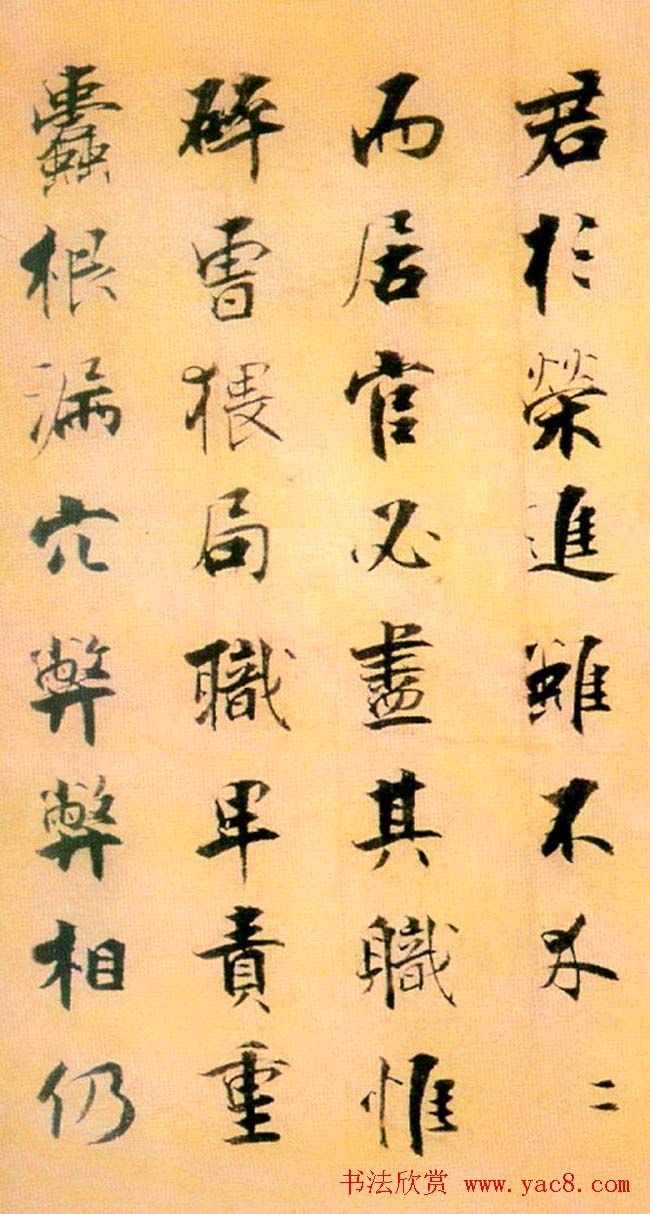 君於榮進雖不
而居官必盡其職惟
碎曹猥局職卑責重
蠹根漏穴弊弊相仍
书法欣赏 www.yac8.com